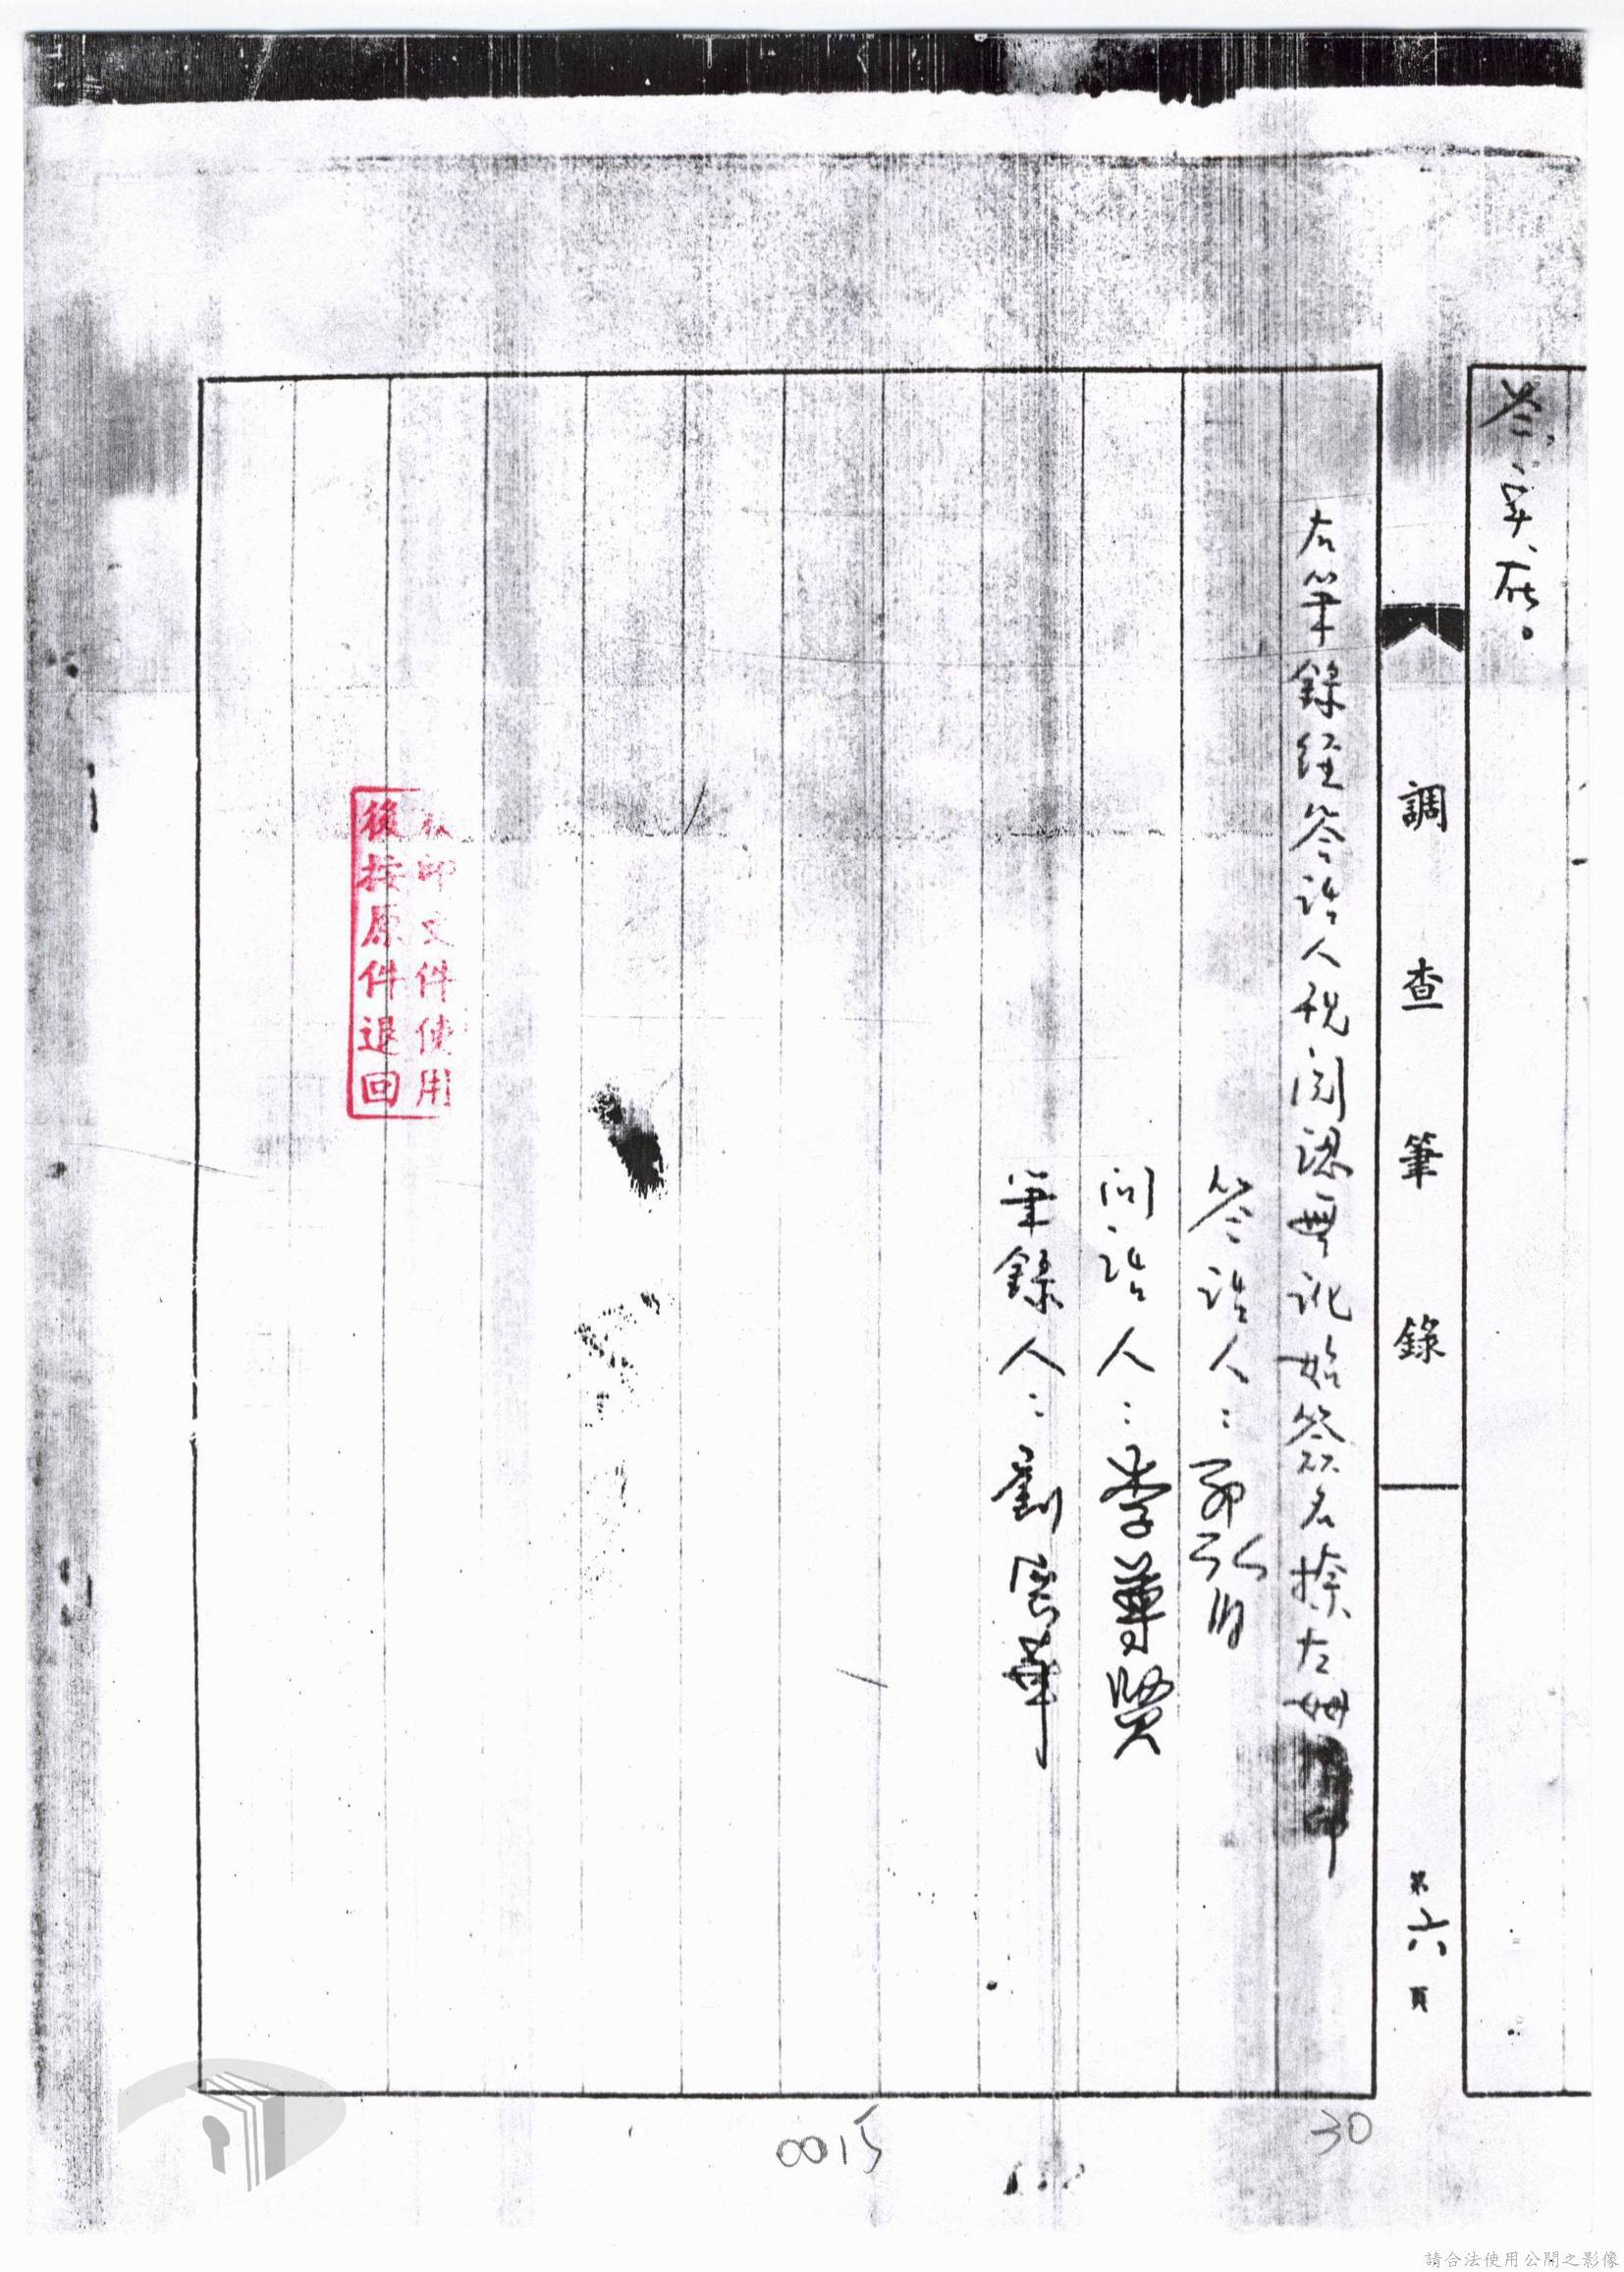 答：實在。
調查筆錄
第六頁
右筆錄經答話人親閱認無訛始簽名捺左姆指印
答話人：
問話人：李尊賢
筆錄人：劉
印文件使用
後按原件退回
0015
30
請合法使用公開之影像